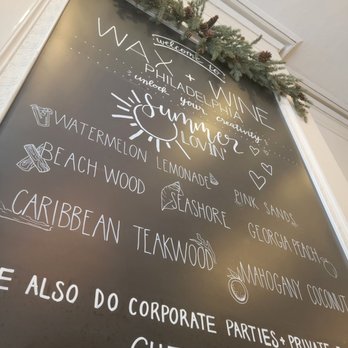 welcome to
WAX + WINE
PHILADELPHIA
unlock your creativity
Summer
LOVIN'
WATERMELON LEMONADE
PINK SANDS
BEACH WOOD
SEASHORE
GEORGIA PEACH
CARIBBEAN TEAKWOOD
MAHOGANY COCONUT
E ALSO DO CORPORATE PARTIES + PRIVATE